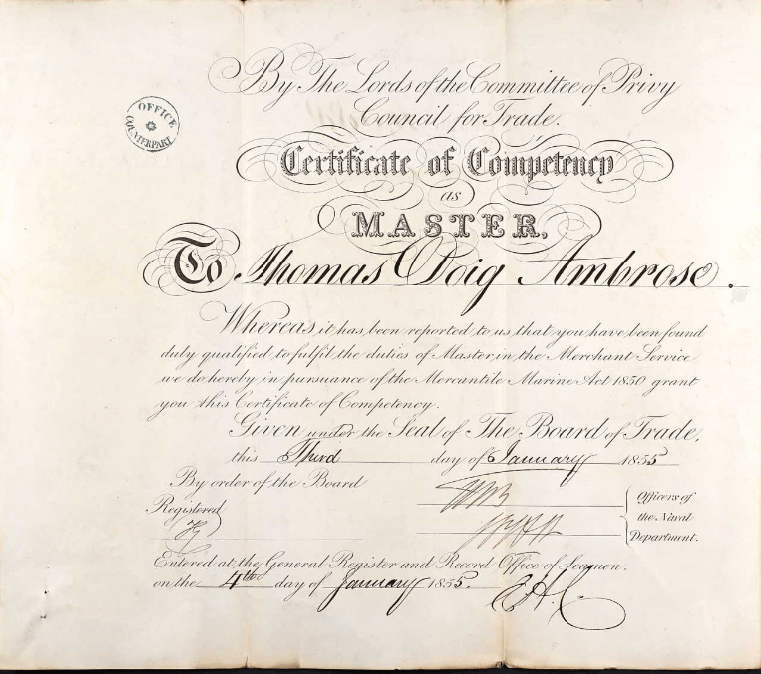 By The Lords of the Committee of Privy
Council for Trade.
OFFICE
COUNTERPART
Certificate of Competency
as
MASTER.
To Thomas Doig Ambrose.
Whereas it has been reported to us that you have been found
duly qualified to fulfil the duties of Master in the Merchant Service
we do hereby in pursuance of the Mercantile Marine Act 1850 grant
you this Certificate of Competency.
Given under the Seal of The Board of Trade.
this Third day of January 1855
By order of the Board
Registered
Officers of
the Naval
Department.
Entered at the General Register and Record Office of Seamen.
on the 4th day of January 1855.